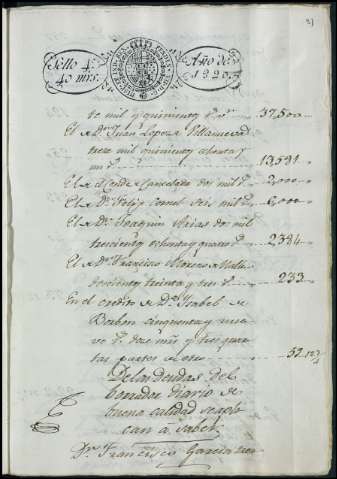 Sello 4º
40 mrs.
Año de
1820.
te mil y quinientos rs. 37,500
El de Dn. Juan Lopez
trece mil quinientos ochenta y
un rs. 13,581
El del Conde de Cancelada dos mil rs. 2,000
El de Dn. Felix seis mil rs. 6,000
El de Dn. Joaquin Arias dos mil
trescientos ochenta y quatro rs. 2384
El de Dn. Francisco Moreno
doscientos treinta y tres rs. 233
En el credito de Da. Isabel de
Borbon cinquenta y nueve
rs. doce mrs. y tres quar
tas partes de otro
De las deudas del
borrador diario de
buena calidad se apli
can a saber
Dn. Francisco Garcia